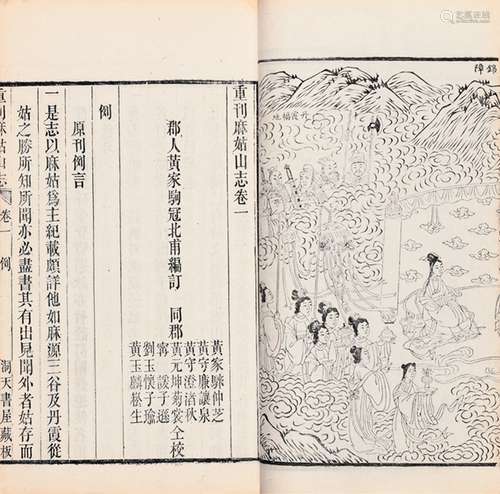 錦障
丹霞福地
重刊麻姑山志卷一
郡人黃家駒冠北甫編訂 同郡
黃家騄仲芝
黃守廉讓泉
黃守澄湛秋
黃元坤菊裳
甯諼子遜
劉玉懷子瑜
黃玉麟崧生
仝校
例
原刊例言
一是志以麻姑爲主紀載頗詳他如麻源三谷及丹霞從
姑之勝所知所聞亦必盡書其有出見聞外者姑存而
重刊麻姑山志 卷一 例
洞天書屋藏板
北京荣宝